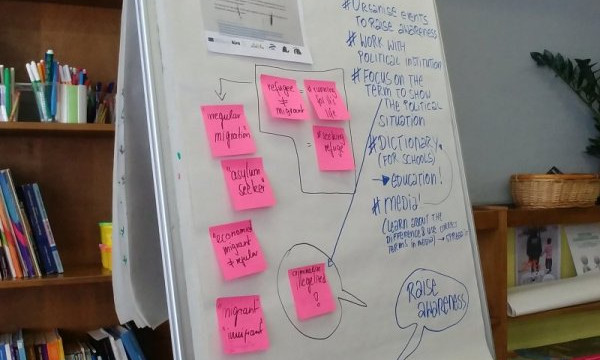 #ORGANISE EVENTS
TO RAISE AWARENESS
#WORK WITH
POLITICAL INSTITUTION
#FOCUS ON THE
TERM TO SHOW
THE POLITICAL
SITUATION
#DICTIONARY
(FOR SCHOOLS)
→ education!
# media!
(LEARN ABOUT THE
DIFFERENCE & USE CORRECT
TERMS IN MEDIA) →
refugee
≠
migrant
=
# running
for his
life
=
# seeking
refuge
irregular
migration
"asylum
seeker"
"economic
migrant
≠ regular
migrant
illegalized
?
RAISE
AWARENESS